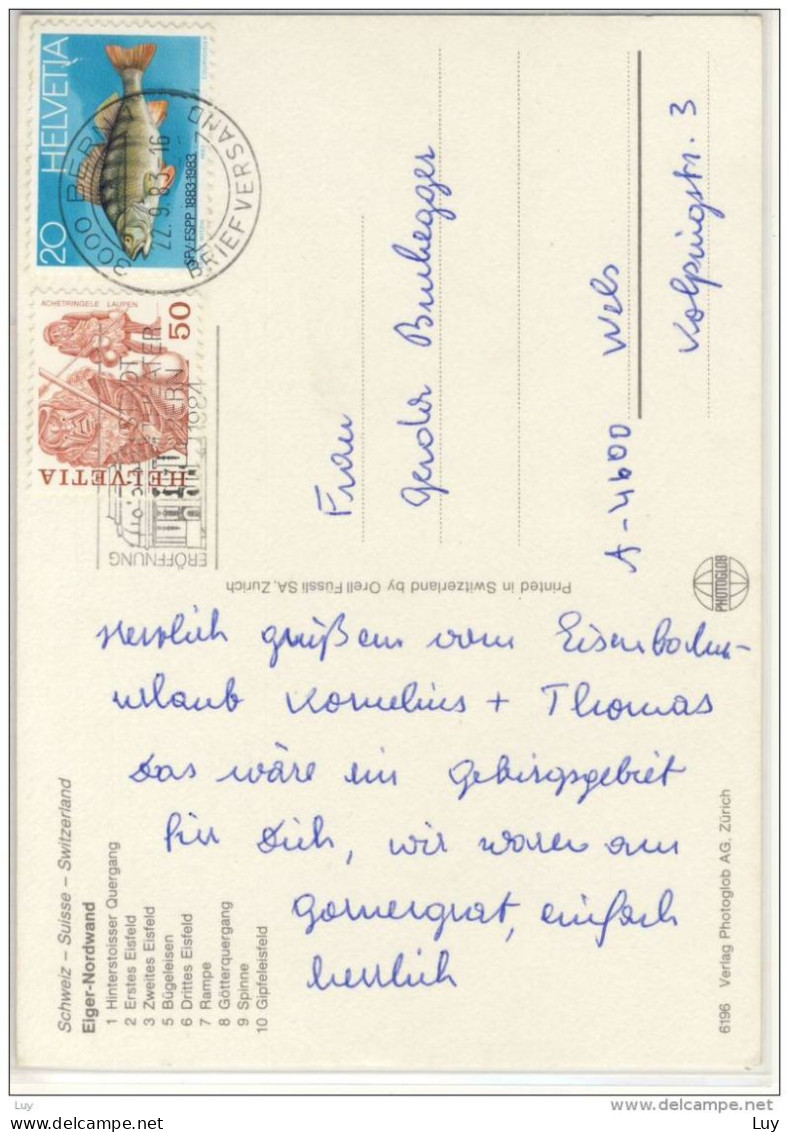 HELVETIA
20
SFV/FSPP 1883-1983
3000 BERN 1
22. 9. 83 - 16
BRIEFVERSAND
ACHETRINGELE LAUPEN
50
HELVETIA
STADT
THEATER
BERN
1984
ERÖFFNUNG
Frau
Gerda Bruhegger
A-4600 Wels
Kolpingstr. 3
Printed in Switzerland by Orell Füssli SA, Zurich
PHOTOGLOB
Herzlich grüßen vom Eisenbahn-
urlaub Kornelius + Thomas
Das wäre ein Gebirgsgebiet
für Dich, wir waren am
Gornergrat, einfach
herrlich
Schweiz – Suisse – Switzerland
Eiger-Nordwand
1 Hinterstoisser Quergang
2 Erstes Eisfeld
3 Zweites Eisfeld
5 Bügeleisen
6 Drittes Eisfeld
7 Rampe
8 Götterquergang
9 Spinne
10 Gipfeleisfeld
6196 Verlag Photoglob AG, Zürich
Luy
www.delcampe.net
Luy